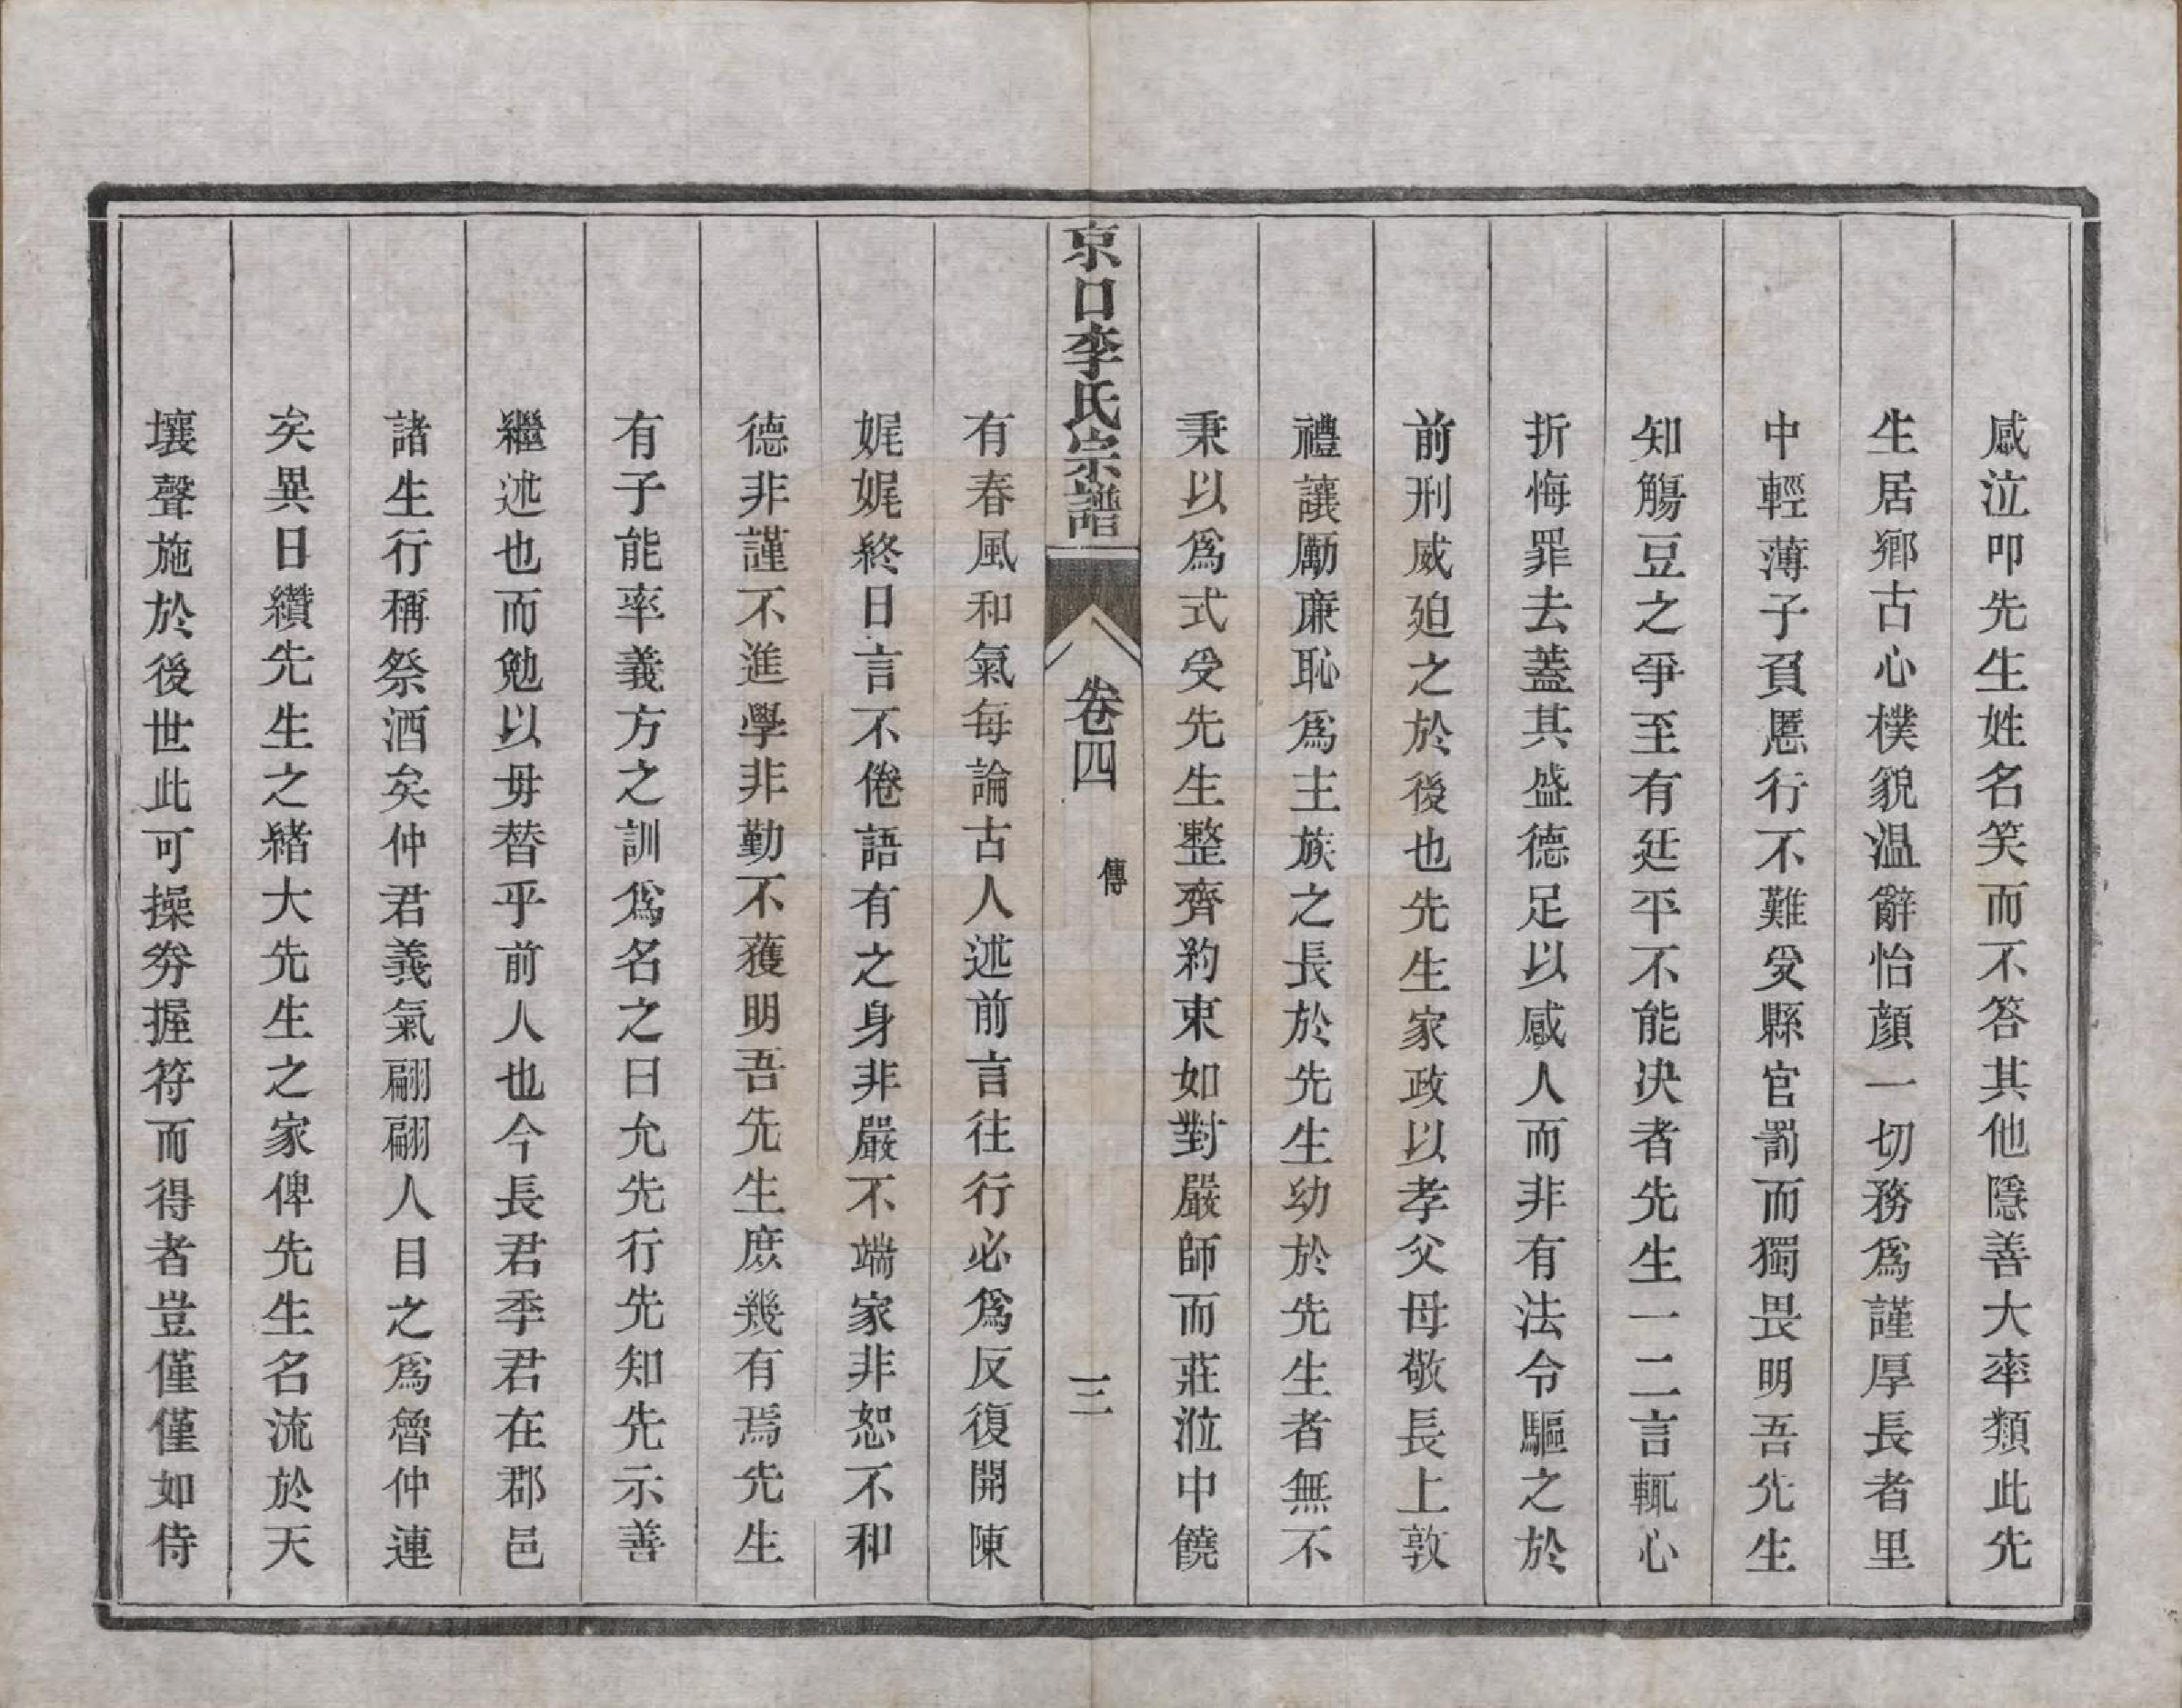 感泣叩先生姓名笑而不答其他隱善大率類此先
生居鄉古心樸貌溫辭怡顏一切務爲謹厚長者里
中輕薄子負慝行不難受縣官罰而獨畏明吾先生
知觴豆之爭至有廷平不能决者先生一二言輒心
折悔罪去蓋其盛德足以感人而非有法令驅之於
前刑威廹之於後也先生家政以孝父母敬長上敦
禮讓勵廉恥爲主族之長於先生幼於先生者無不
秉以爲式受先生整齊約束如對嚴師而莊涖中饒
京口李氏宗譜 卷四 傳 三
有春風和氣每論古人述前言往行必爲反復開陳
娓娓終日言不倦語有之身非嚴不端家非恕不和
德非謹不進學非勤不獲明吾先生庶幾有焉先生
有子能率義方之訓爲名之曰允先行先知先示善
繼述也而勉以毋替乎前人也今長君季君在郡邑
諸生行稱祭酒矣仲君義氣翩翩人目之爲魯仲連
矣異日纘先生之緒大先生之家俾先生名流於天
壤聲施於後世此可操券握符而得者豈僅僅如侍